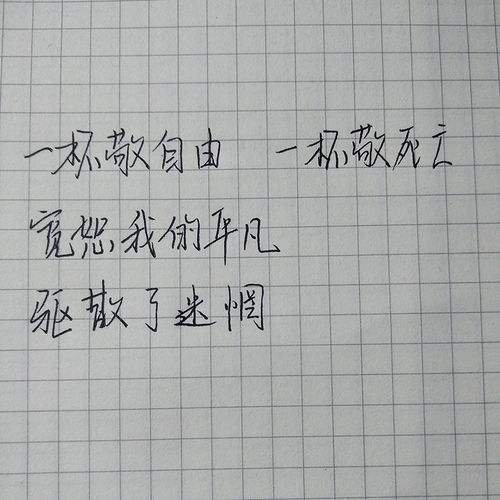 一杯敬自由 一杯敬死亡
宽恕我的平凡
驱散了迷惘